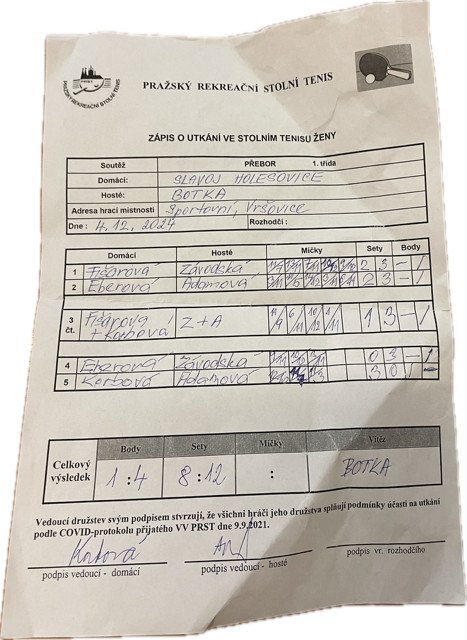 PRST
PRAŽSKÝ REKREAČNÍ STOLNÍ TENIS
PRAŽSKÝ REKREAČNÍ STOLNÍ TENIS
ZÁPIS O UTKÁNÍ VE STOLNÍM TENISU ŽENY
Soutěž PŘEBOR 1. třída
Domácí: SLAVOJ HOLEŠOVICE
Hosté: BOTKA
Adresa hrací místnosti Sportovní, Vršovice
Dne: 4.12.2024 Rozhodčí:
Domácí Hosté Míčky Sety Body
1 Fišarová Závodská 2 3 - 1
2 Eberová Adamová 2 3 - 1
3 čt. Fišarová + Korbová Z+A 11/9 6/11 10/12 8/11 1 3 - 1
4 Eberová Závodská 0 3 - 1
5 Korbová Adamová 3 0 1 -
Body Sety Míčky Vítěz
Celkový výsledek 1:4 8:12 : BOTKA
Vedoucí družstev svým podpisem stvrzují, že všichni hráči jeho družstva splňují podmínky účasti na utkání
podle COVID-protokolu přijatého VV PRST dne 9.9.2021.
Korbová
podpis vedoucí - domácí podpis vedoucí - hosté podpis vr. rozhodčího